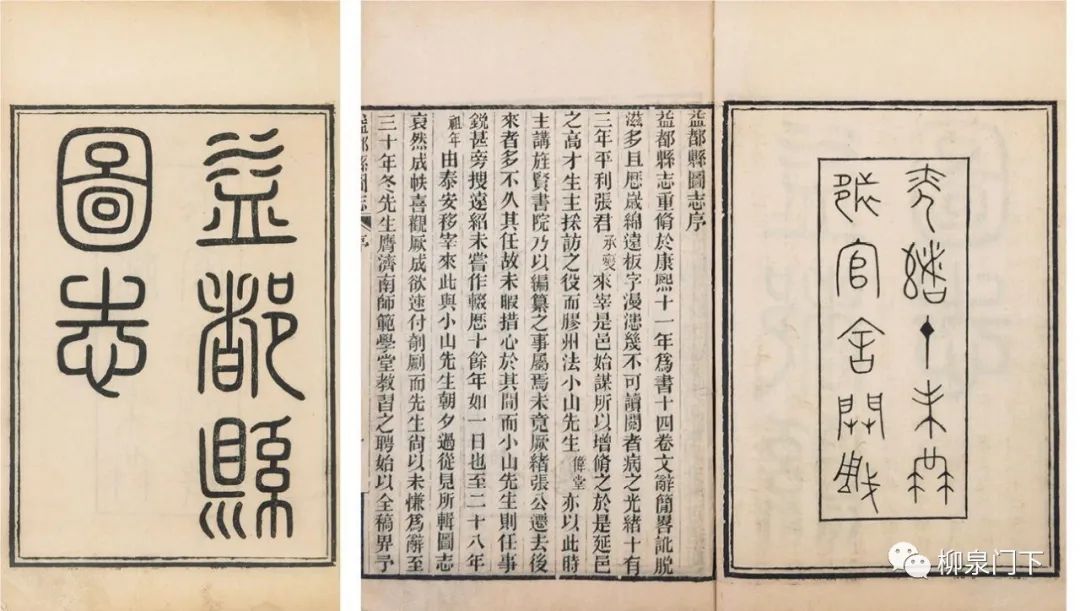 益都縣
圖志
光緒丁未
官舍開雕
益都縣圖志序
益都縣志重脩於康熙十一年爲書十四卷文辭簡畧訛脫
滋多且歷歲綿遠板字漫漶幾不可讀閱者病之光緒十有
三年平利張君承燮來宰是邑始謀所以增脩之於是延邑
之高才生主採訪之役而膠州法小山先生偉堂亦以此時
主講旌賢書院乃以編纂之事屬焉未竟厥緒張公遷去後
來者多不久其任故未暇措心於其間而小山先生則任事
銳甚旁搜遠紹未嘗作輟歷十餘年如一日也至二十八年
祖年由泰安移宰來此與小山先生朝夕過從見所輯圖志
裒然成帙喜觀厥成欲速付剞劂而先生尙以未慊爲辭至
三十年冬先生膺濟南師範學堂教習之聘始以全稿畀予
益都縣圖志 序
柳泉门下